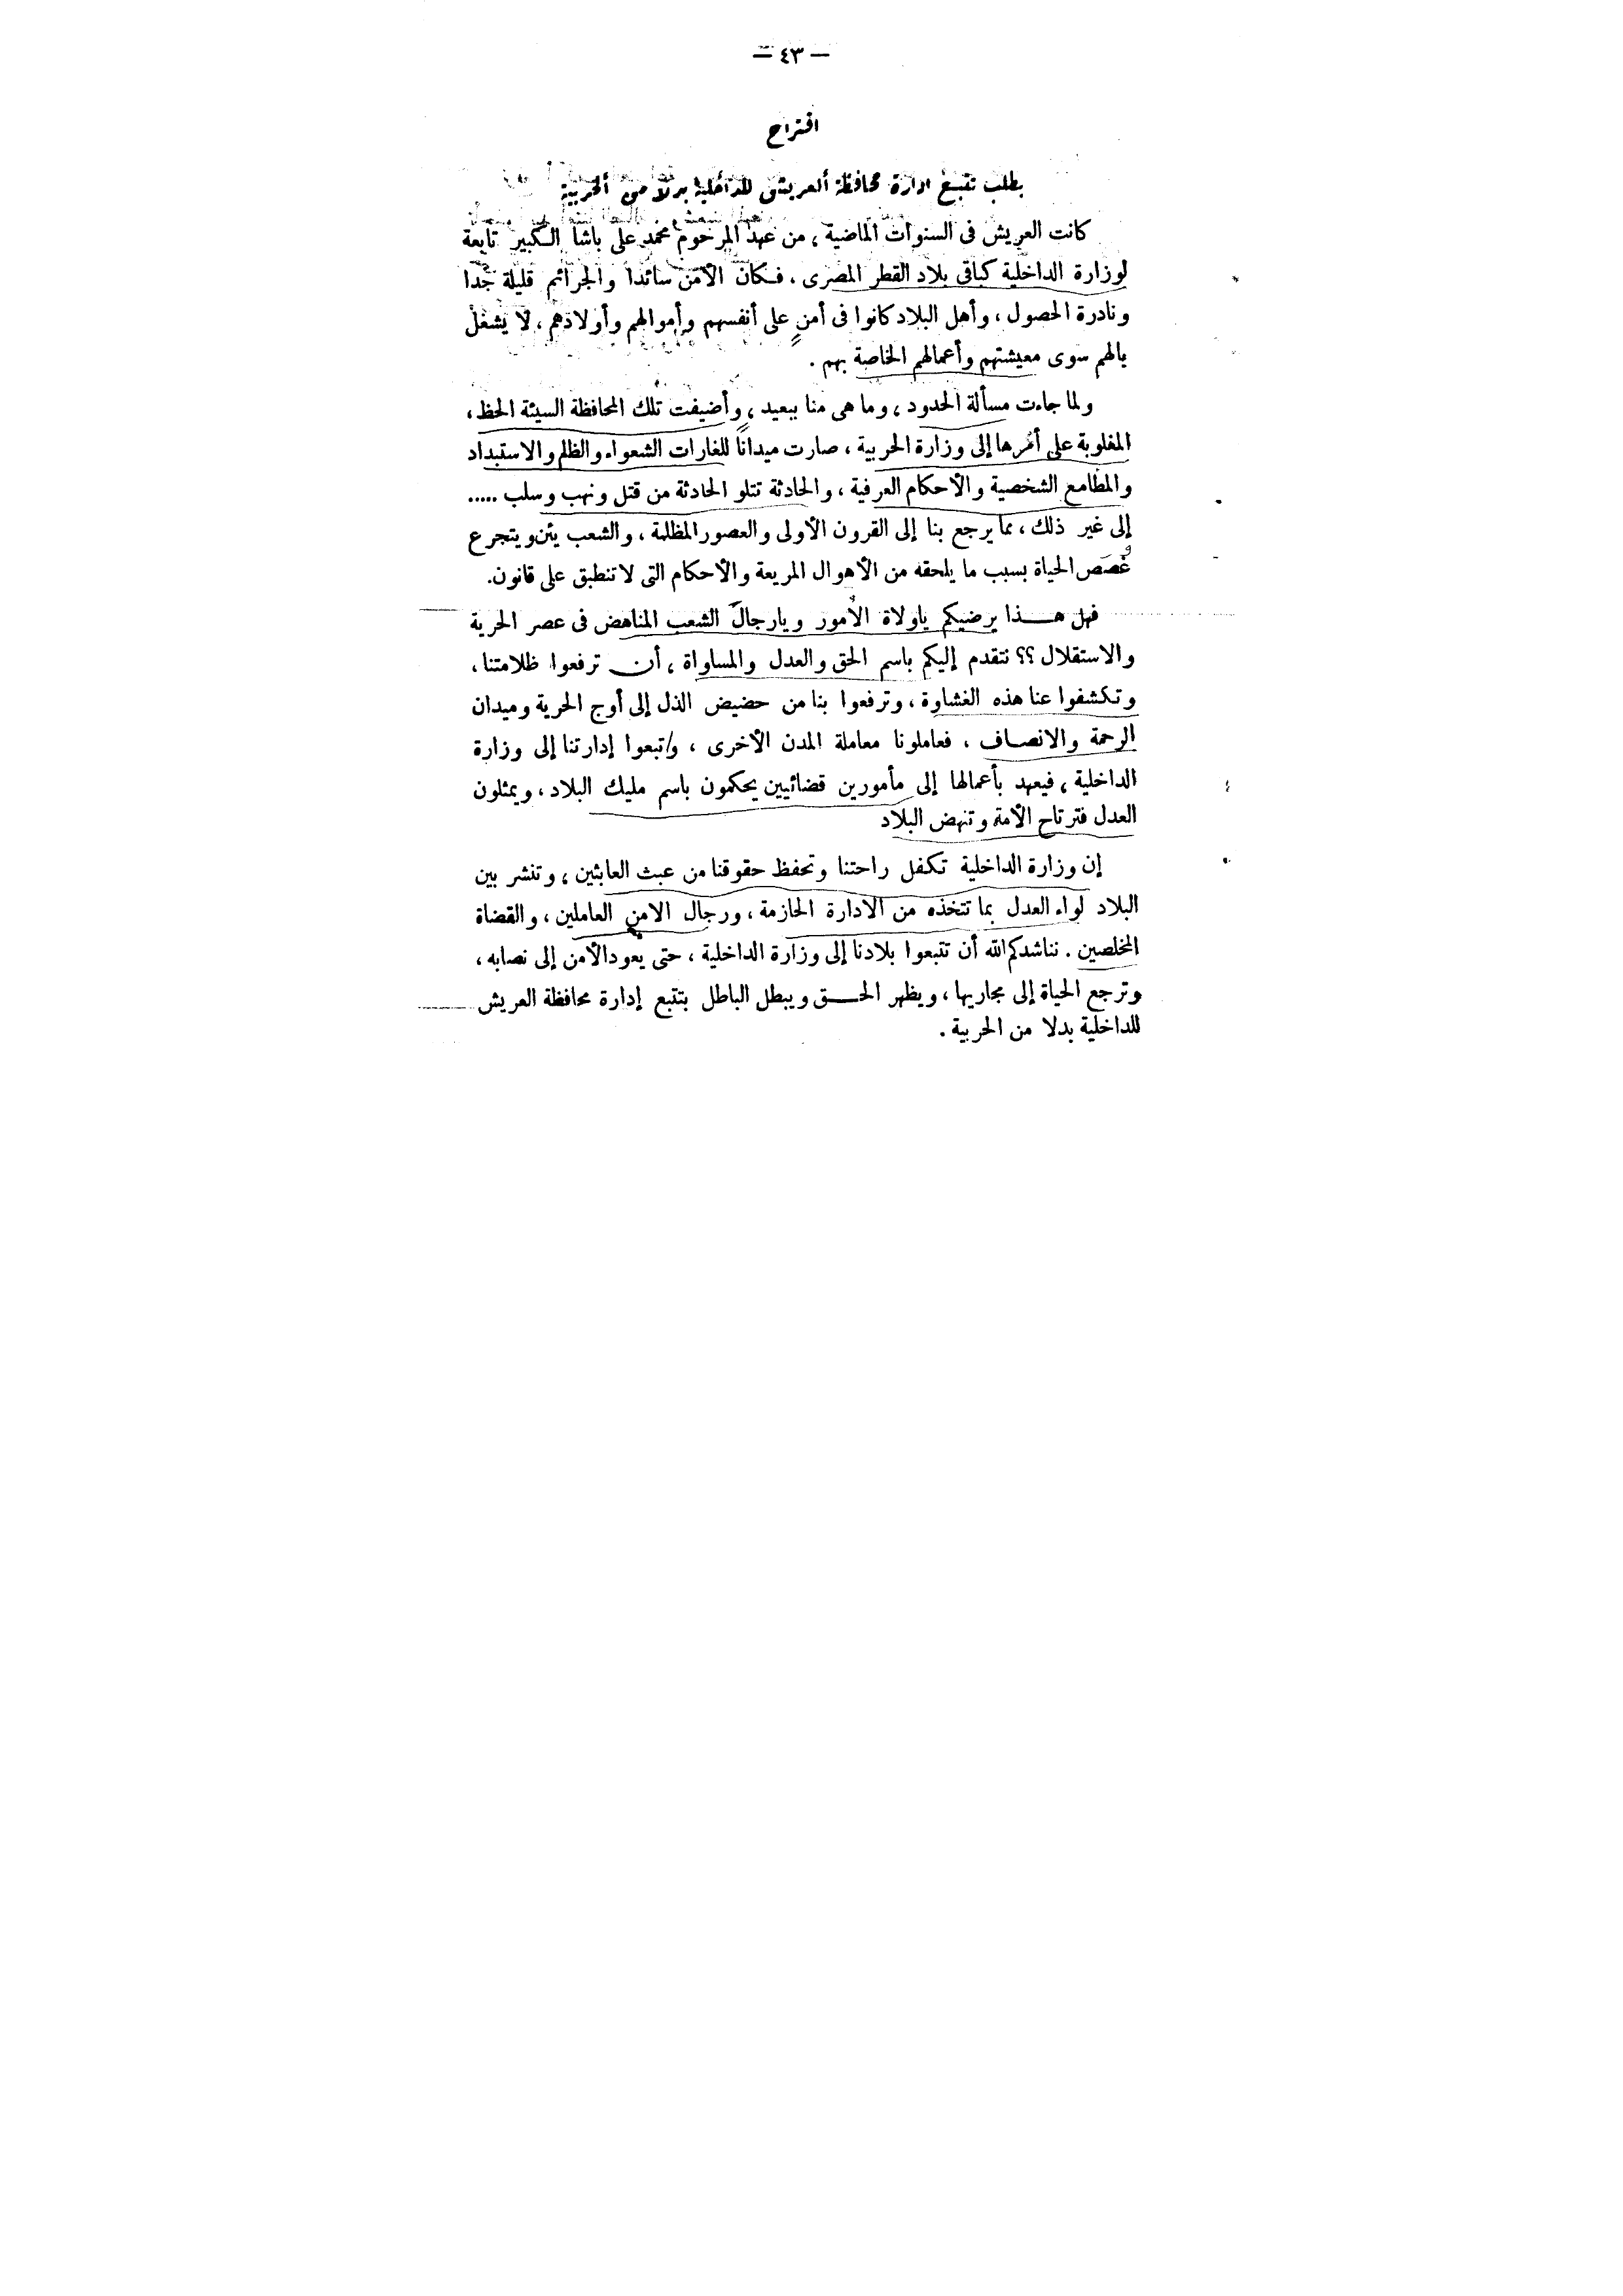 — ٤٣ —
اقتراح
بطلب تتبع ادارة محافظة العريش للداخلية بدلا من الحربية
كانت العريش فى السنوات الماضية ، من عهد المرحوم محمد على باشا الكبير تابعة
لوزارة الداخلية كباقى بلاد القطر المصرى . فكان الأمن سائداً والجرائم قليلة جداً
ونادرة الحصول ، وأهل البلاد كانوا فى أمنٍ على أنفسهم وأموالهم وأولادهم ، لا يشغل
بالهم سوى معيشتهم وأعمالهم الخاصة بهم .
ولما جاءت مسألة الحدود ، وما هى منا ببعيد ، وأضيفت تلك المحافظة السيئة الحظ ،
المغلوبة على أمرها إلى وزارة الحربية ، صارت ميداناً للغارات الشعواء والظلم والاستبداد
والمطامع الشخصية والأحكام العرفية ، والحادثة تتلو الحادثة من قتل ونهب وسلب .....
إلى غير ذلك ، مما يرجع بنا إلى القرون الأولى والعصور المظلمة ، والشعب يئن ويتجرع
غُصَص الحياة بسبب ما يلحقه من الأهوال المريعة والأحكام التى لا تنطبق على قانون.
فهل هـــذا يرضيكم ياولاة الأمور ويارجالَ الشعب المناهض فى عصر الحرية
والاستقلال ؟؟ نتقدم إليكم باسم الحق والعدل والمساواة ، أن ترفعوا ظلامتنا ،
وتكشفوا عنا هذه الغشاوة ، وترفعوا بنا من حضيض الذل إلى أوج الحرية وميدان
الرحمة والانصاف ، فعاملونا معاملة المدن الأخرى ، واتبعوا إدارتنا إلى وزارة
الداخلية ، فيعهد بأعمالها إلى مأمورين قضائيين يحكمون باسم مليك البلاد ، ويمثلون
العدل فترتاح الأمة وتنهض البلاد
إن وزارة الداخلية تكفل راحتنا وتحفظ حقوقنا من عبث العابثين ، وتنشر بين
البلاد لواء العدل بما تتخذه من الادارة الحازمة ، ورجال الامن العاملين ، والقضاة
المخلصين . نناشدكم الله أن تتبعوا بلادنا إلى وزارة الداخلية ، حتى يعود الأمن إلى نصابه ،
وترجع الحياة إلى مجاريها ، ويظهر الحـــق ويبطل الباطل بتتبع إدارة محافظة العريش
للداخلية بدلا من الحربية .